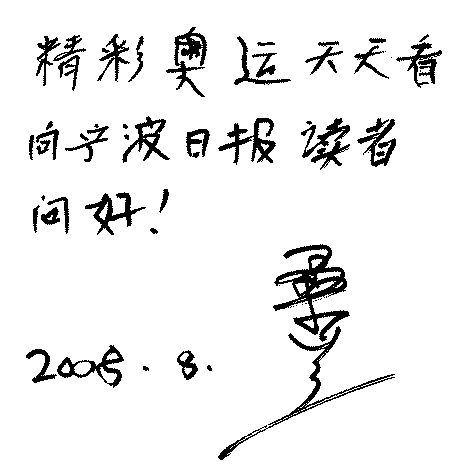 精彩奥运天天看
向宁波日报读者
问好!
2008.8.